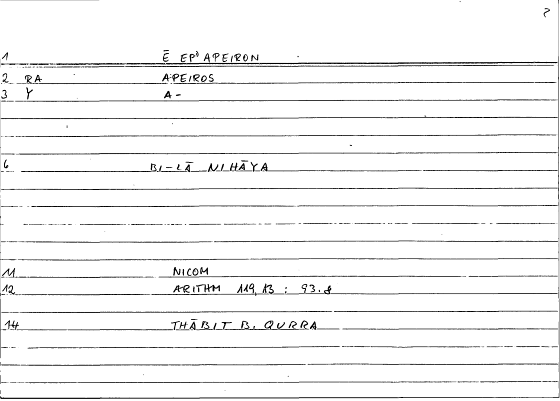 1 Ē EP' APEIRON
2 RA APEIROS
3 Y A-
6 BI-LĀ NIHĀYA
11 NICOM
12 ARITHM 119,13 : 93.8
14 THĀBIT B. QURRA